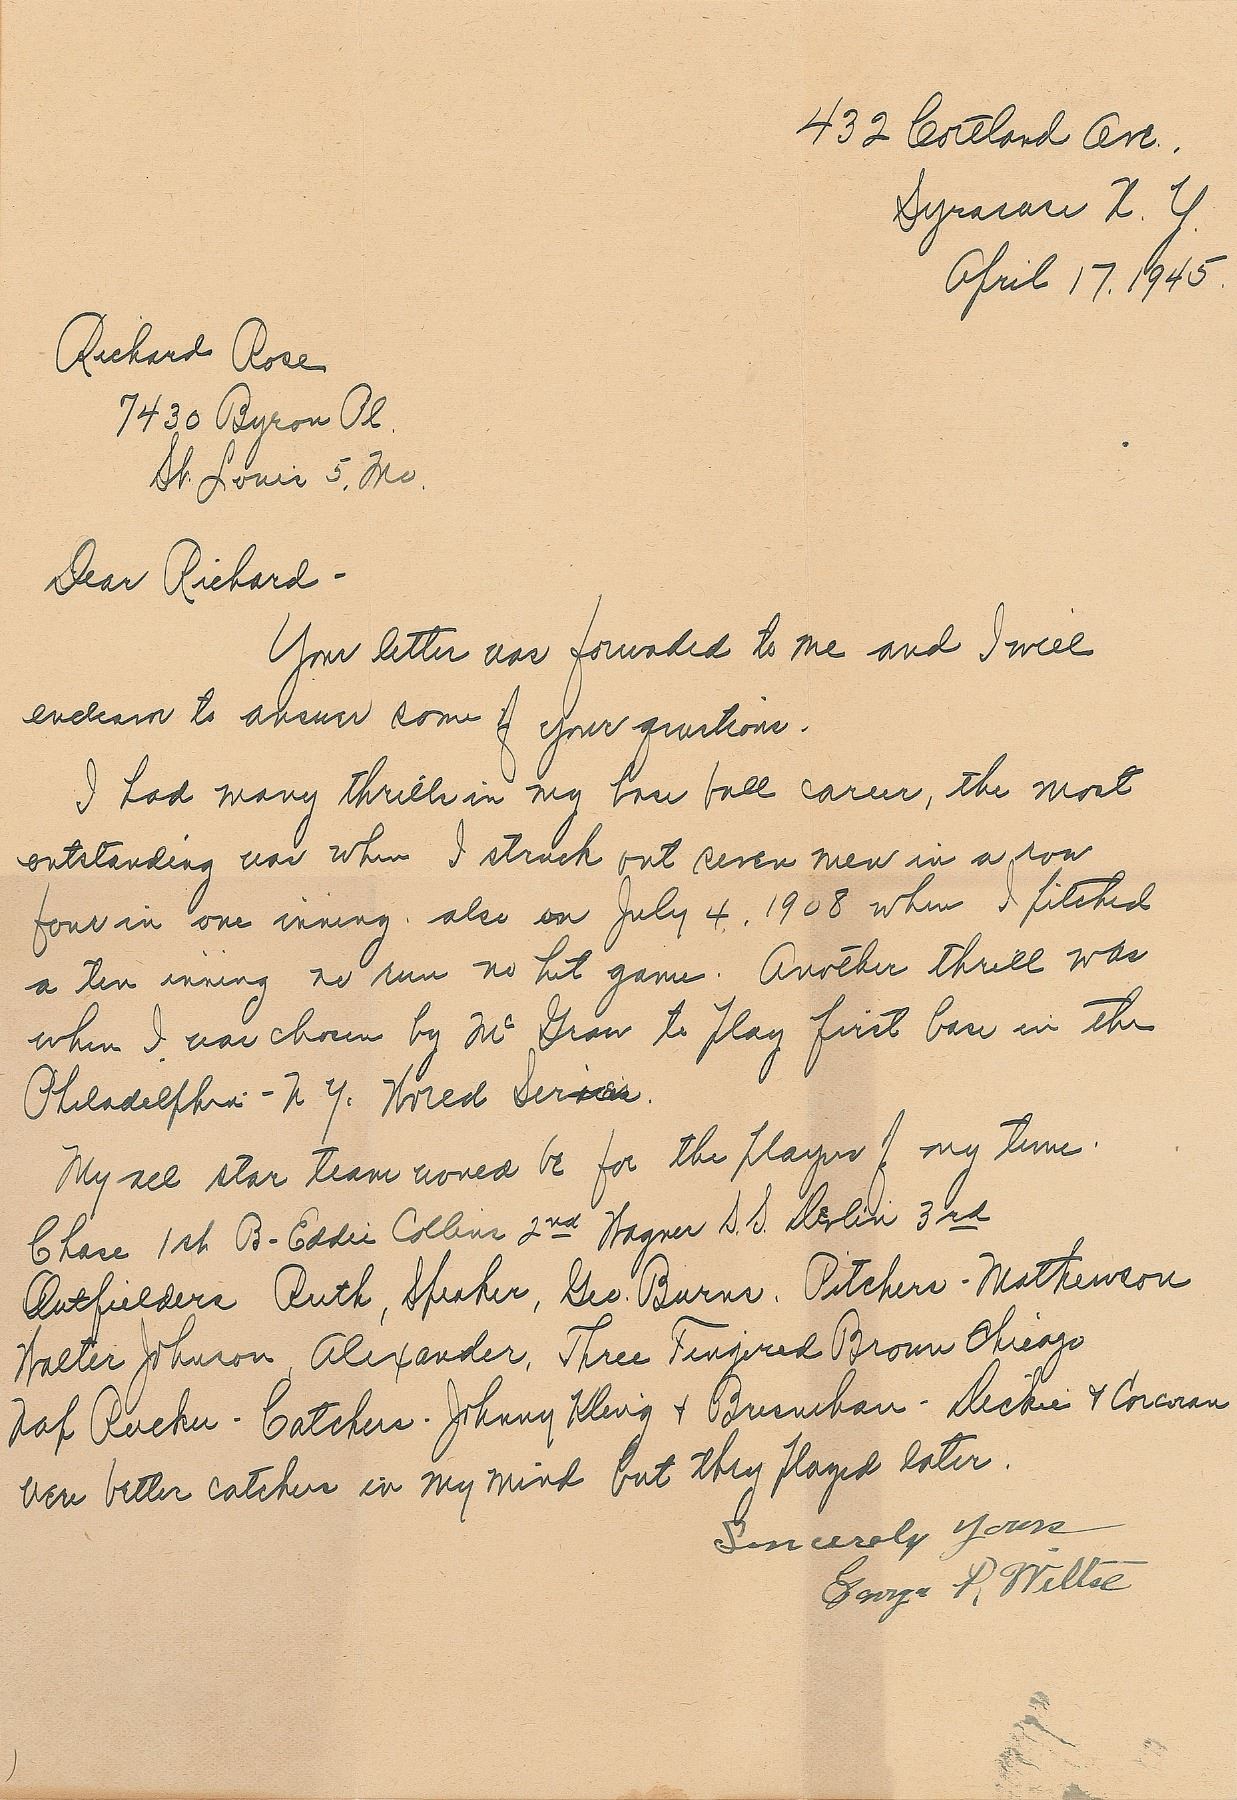 432 Cortland Ave.
Syracuse N. Y.
April 17. 1945.
Richard Rose
7430 Byron Pl.
St. Louis 5, Mo.
Dear Richard -
Your letter was forwaded to me and I will
endeavor to answer some of your questions.
I had many thrills in my base ball career, the most
outstanding was when I struck out seven men in a row
four in one inning. also on July 4, 1908 when I pitched
a ten inning no run no hit game. Another thrill was
when I was chosen by Mc Graw to play first base in the
Philadelphia - N Y. World Series.
My all star team would be for the players of my time.
Chase 1st B - Eddie Collins 2nd Wagner S. S. Devlin 3rd
Outfielders Ruth, Speaker, Geo. Burns. Pitchers - Mathewson
Walter Johnson, Alexander, Three Fingered Brown Chicago
Nap Rucker - Catchers - Johnny Kling + Bresnehan - Dickie & Corcoran
were better catchers in my mind but they played later.
Sincerely Yours
George R, Wiltse